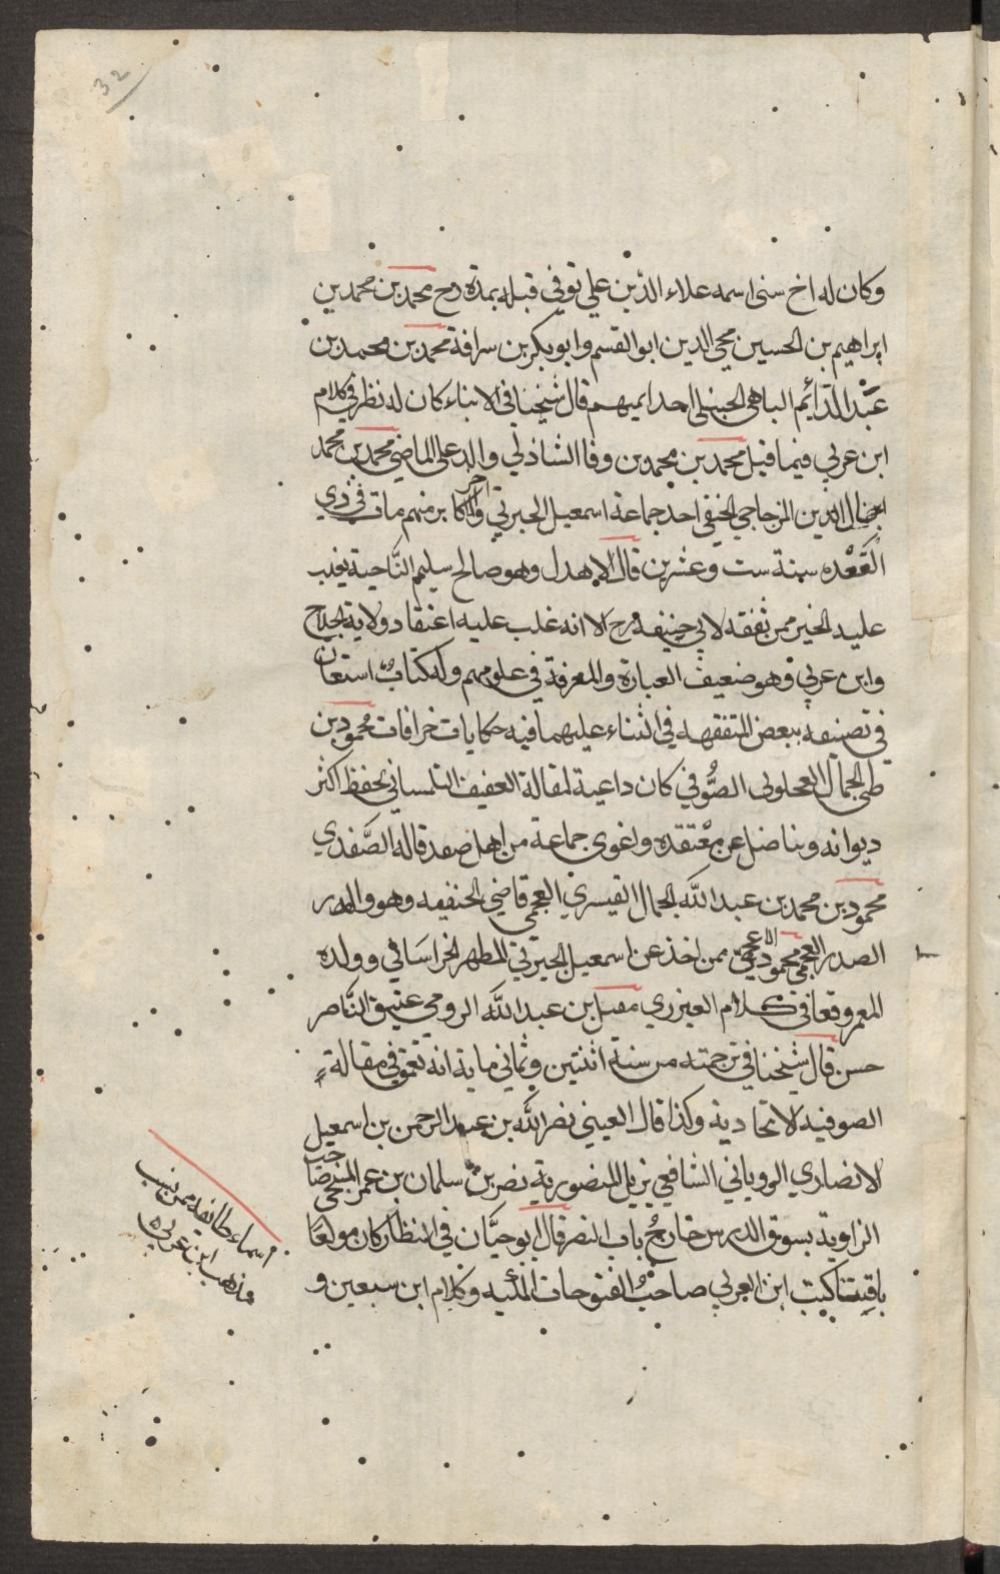 32
وكان له اخ سنى اسمه علاء الدين علي توفي قبله بمدة رح محمد بن محمد بن
ابراهيم بن الحسين محي الدين ابو القسم وابو بكر بن سراقة محمد بن محمد بن
عبد الدائم الباهي الحنبلي احد ايمتهم قال شيخنا في الانباء كان له نظر في كلام
ابن عربي فيما قيل محمد بن محمد بن وفا الشاذلي والد علي الماضي محمد بن محمد
ابن جمال الدين المزجاجي الحنفي احد جماعة اسمعيل الجبرتي واحد الاكابر منهم مات في ذي
القعده سنة ست وعشرين قال الاهدل وهو صالح سليم الناحية يغلب
عليه الخير ممن تفقه لابي حنيفه رح الا انه غلب عليه اعتقاد ولاية الحلاج
وابن عربي وهو ضعيف العبارة والمعرفة في علومهم وله كتاب استعان
في تصنيفه ببعض المتفقهه في الثناء عليهما فيه حكايات خرافات محمود بن
طي الجمال العجلوني الصوفي كان داعية لمقالة العفيف التلمساني يحفظ اكثر
ديوانه ويناضل عن معتقده واغوى جماعة من اهل صفد قاله الصفدي
محمود بن محمد بن عبد الله الجمال القيسري العجمي قاضي الحنفيه وهو والد
الصدر العجمي محمود الاعجمي ممن اخذ عن اسمعيل الجبرتي المطهر الخراساني وولده
المعمر وقعا في كلام العيزري مقبل بن عبد الله الرومي عتيق الناصر
حسن قال شيخنا في ترجمته من سنة اثنتين وثماني ماية انه تعمق في مقالة
الصوفيه الاتحادية وكذا قال العيني نصر الله بن عبد الرحمن بن اسمعيل
الانصاري الروياني الشافعي نزيل المنصورية نصر بن سلمان بن عمر المنبجي صاحب
الزاوية بسوق الدريس خارج باب النصر قال ابو حيان في النضار كان مولعا
باقتناء كتب ابن العربي صاحب الفتوحات المكيه وكلام ابن سبعين و
اسماء طائفه ممن نسب
مذهب ابن عربي